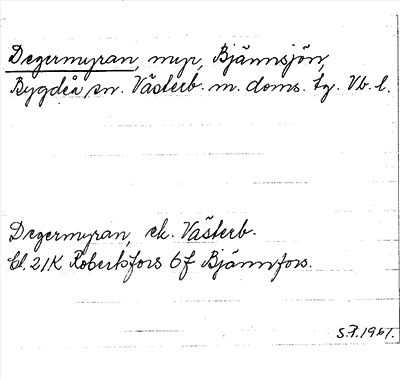 Degermyran, myr, Bjännsjön,
Bygdeå sn. Västerb. m. doms. tg. Vb. l.
Degermyran, ek. Västerb.
bl. 21K Robertsfors 6f Bjännfors.
S.F. 1961.